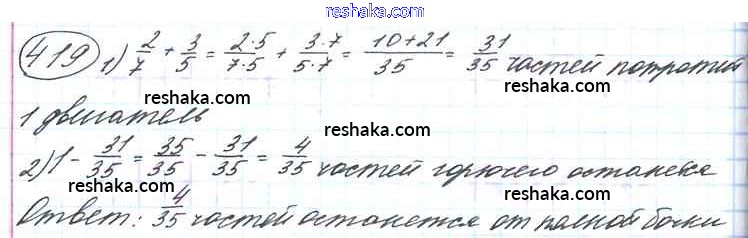 www.reshaka.com
419 1) 2/7 + 3/5 = 2·5/7·5 + 3·7/5·7 = 10+21/35 = 31/35 частей потратит
reshaka.com
reshaka.com
1 двигатель
reshaka.com
2) 1 - 31/35 = 35/35 - 31/35 = 4/35 частей горючего останется
reshaka.com
reshaka.com
Ответ: 4/35 частей останется от полной бочки
reshaka.com